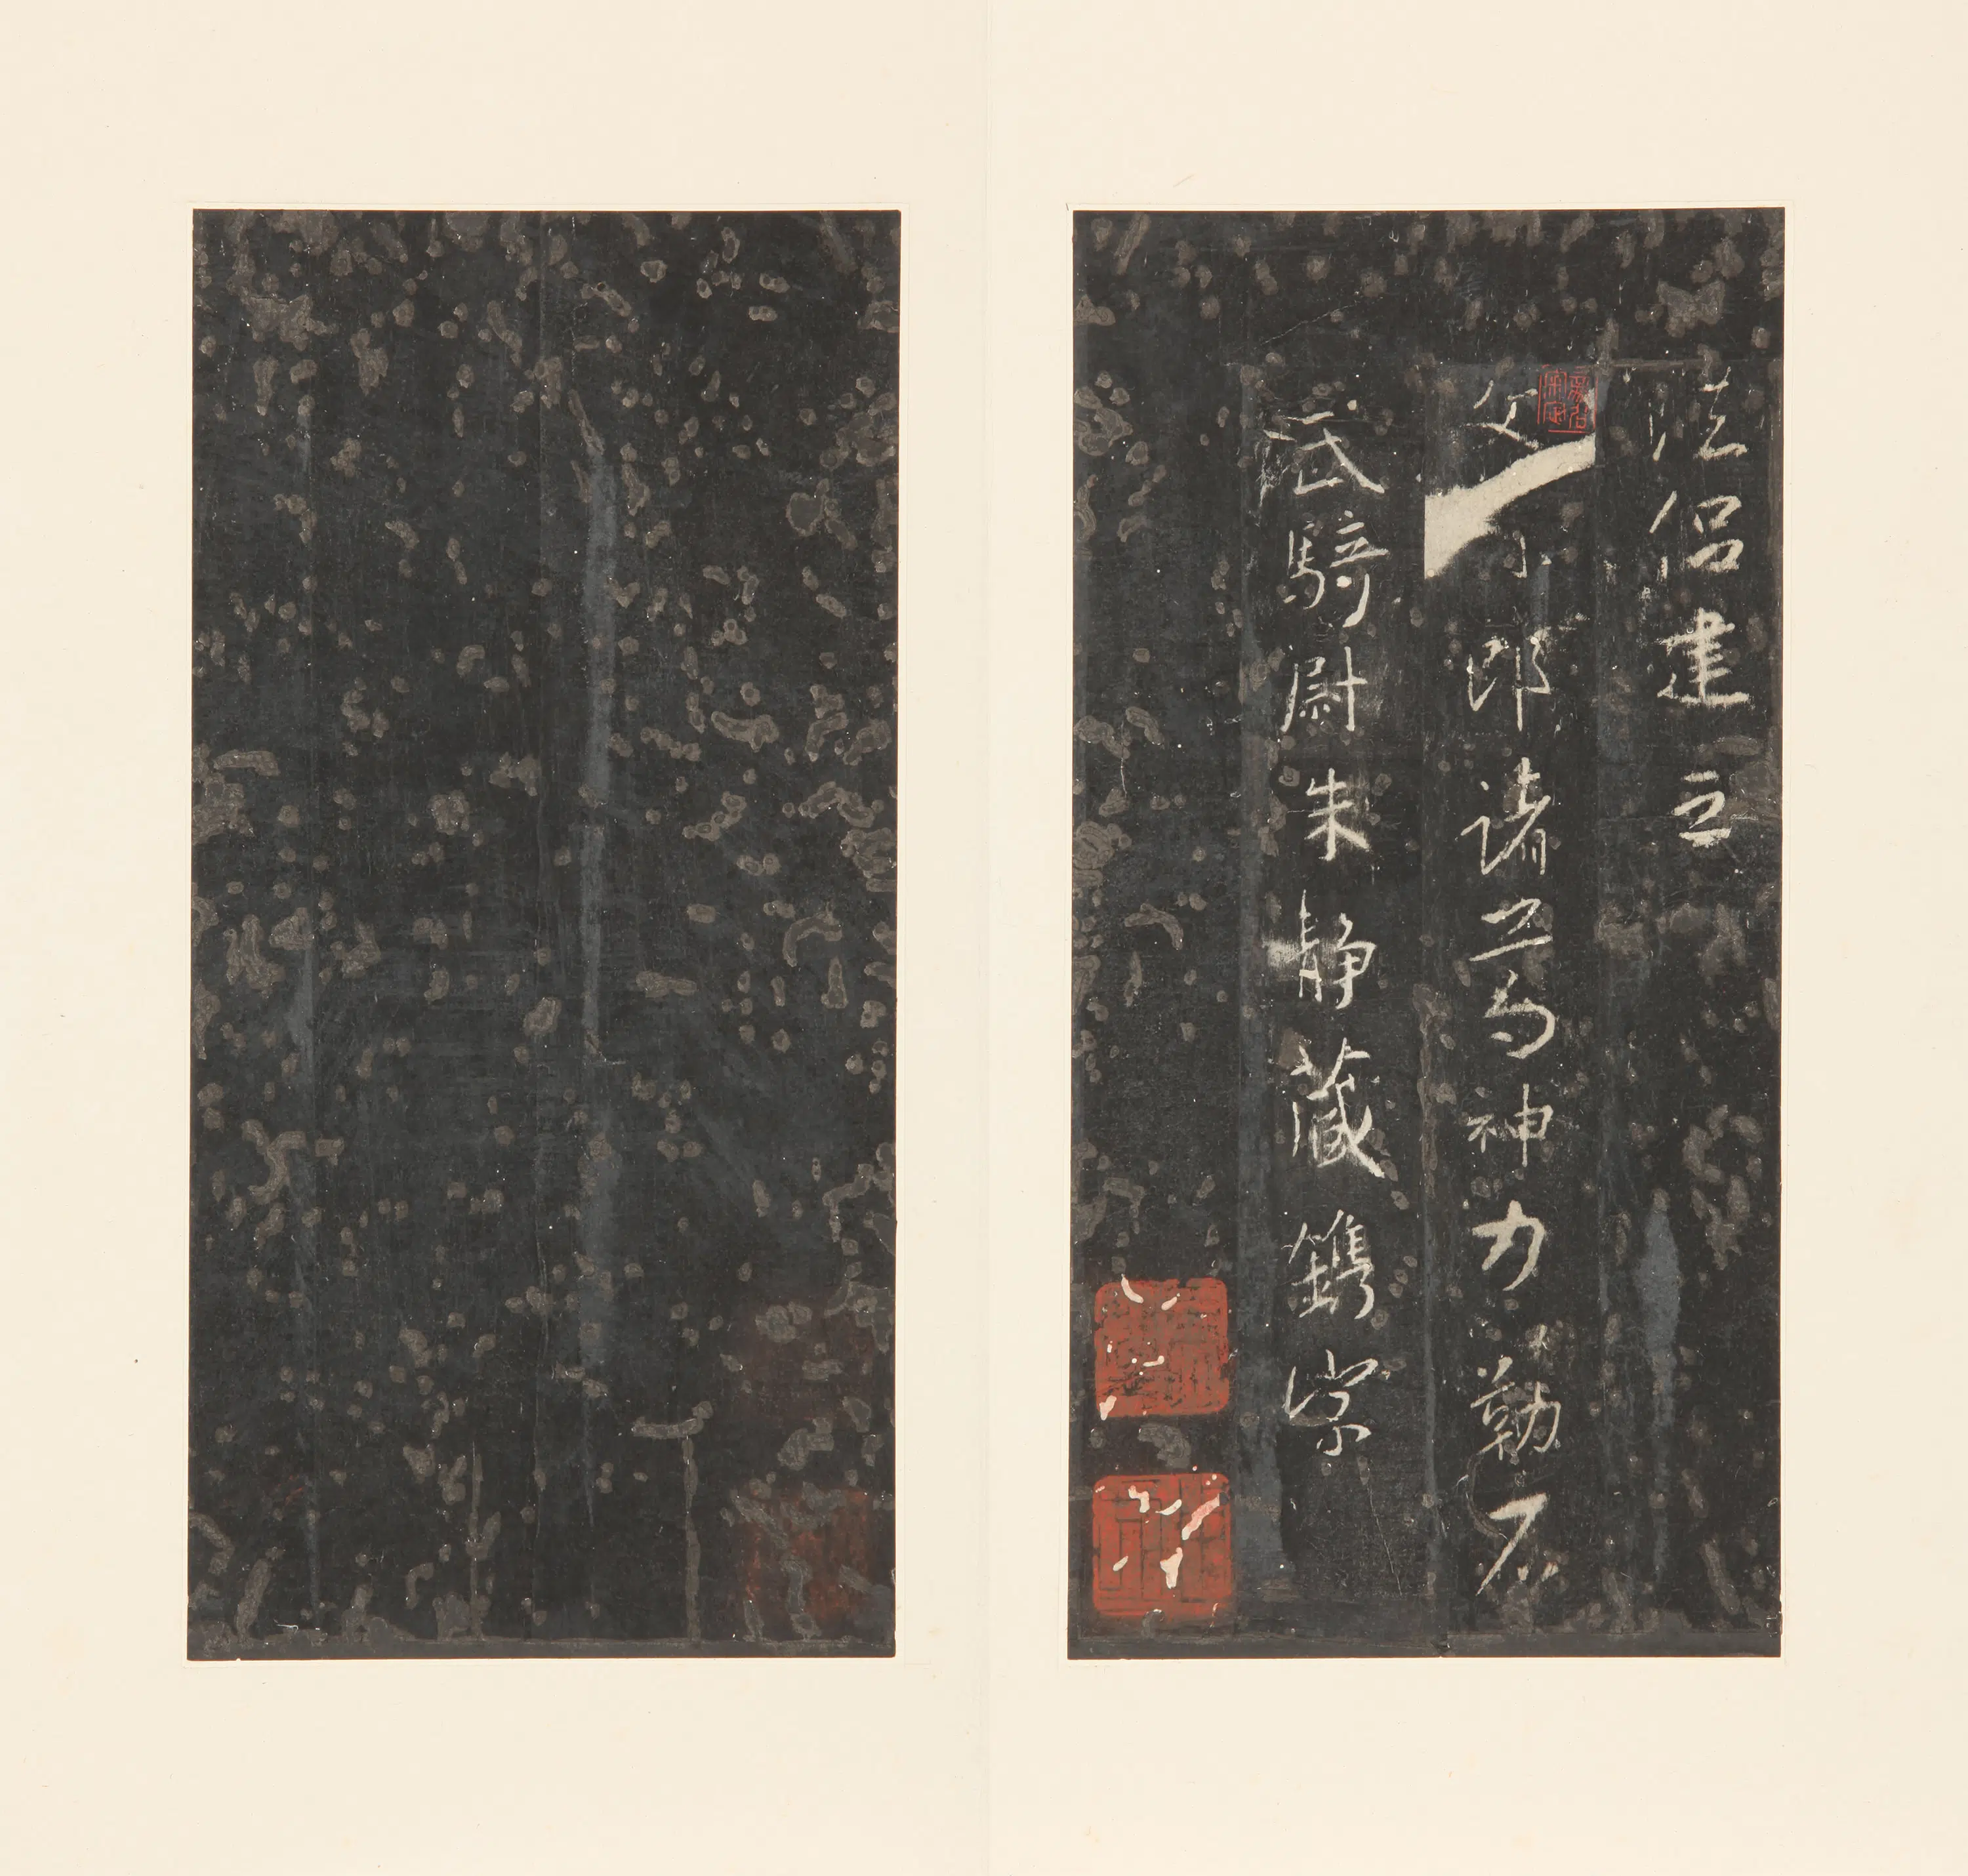 法侶建立
文林郎諸葛神力勒石
武騎尉朱静藏鐫字